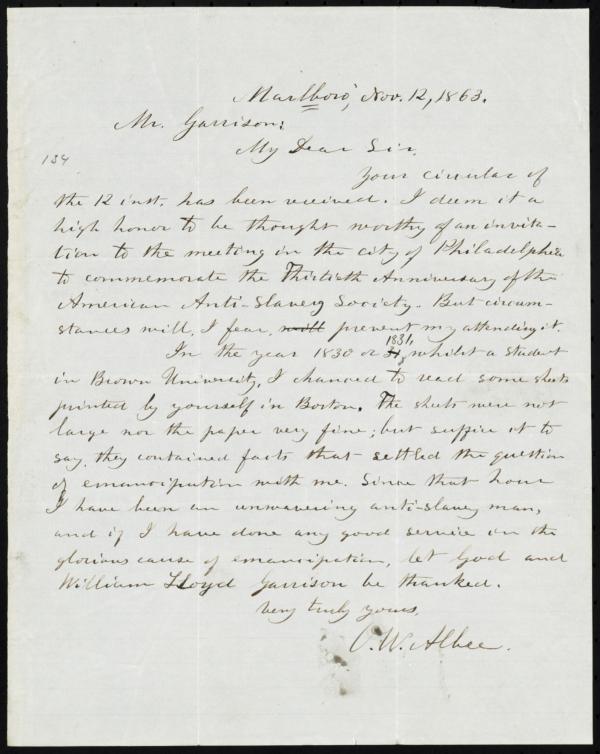 Marlboro', Nov. 12, 1863.
Mr. Garrison:
My Dear Sir,
134
Your circular of
the 12 inst. has been received. I deem it a
high honor to be thought worthy of an invita-
tion to the meeting in the city of Philadelphia
to commemorate the Thirtieth Anniversary of the
American Anti-Slavery Society. But circum-
stances will, I fear, will prevent my attending it.
In the year 1830 or 31 1831, whilst a student
in Brown University, I chanced to read some sheets
printed by yourself in Boston. The sheets were not
large nor the paper very fine; but suffice it to
say, they contained facts that settled the question
of emancipation with me. Since that hour
I have been an unwavering anti-slavery man,
and if I have done any good service in the
glorious cause of emancipation, let God and
William Lloyd Garrison be thanked.
Very truly yours,
O. W. Albee.